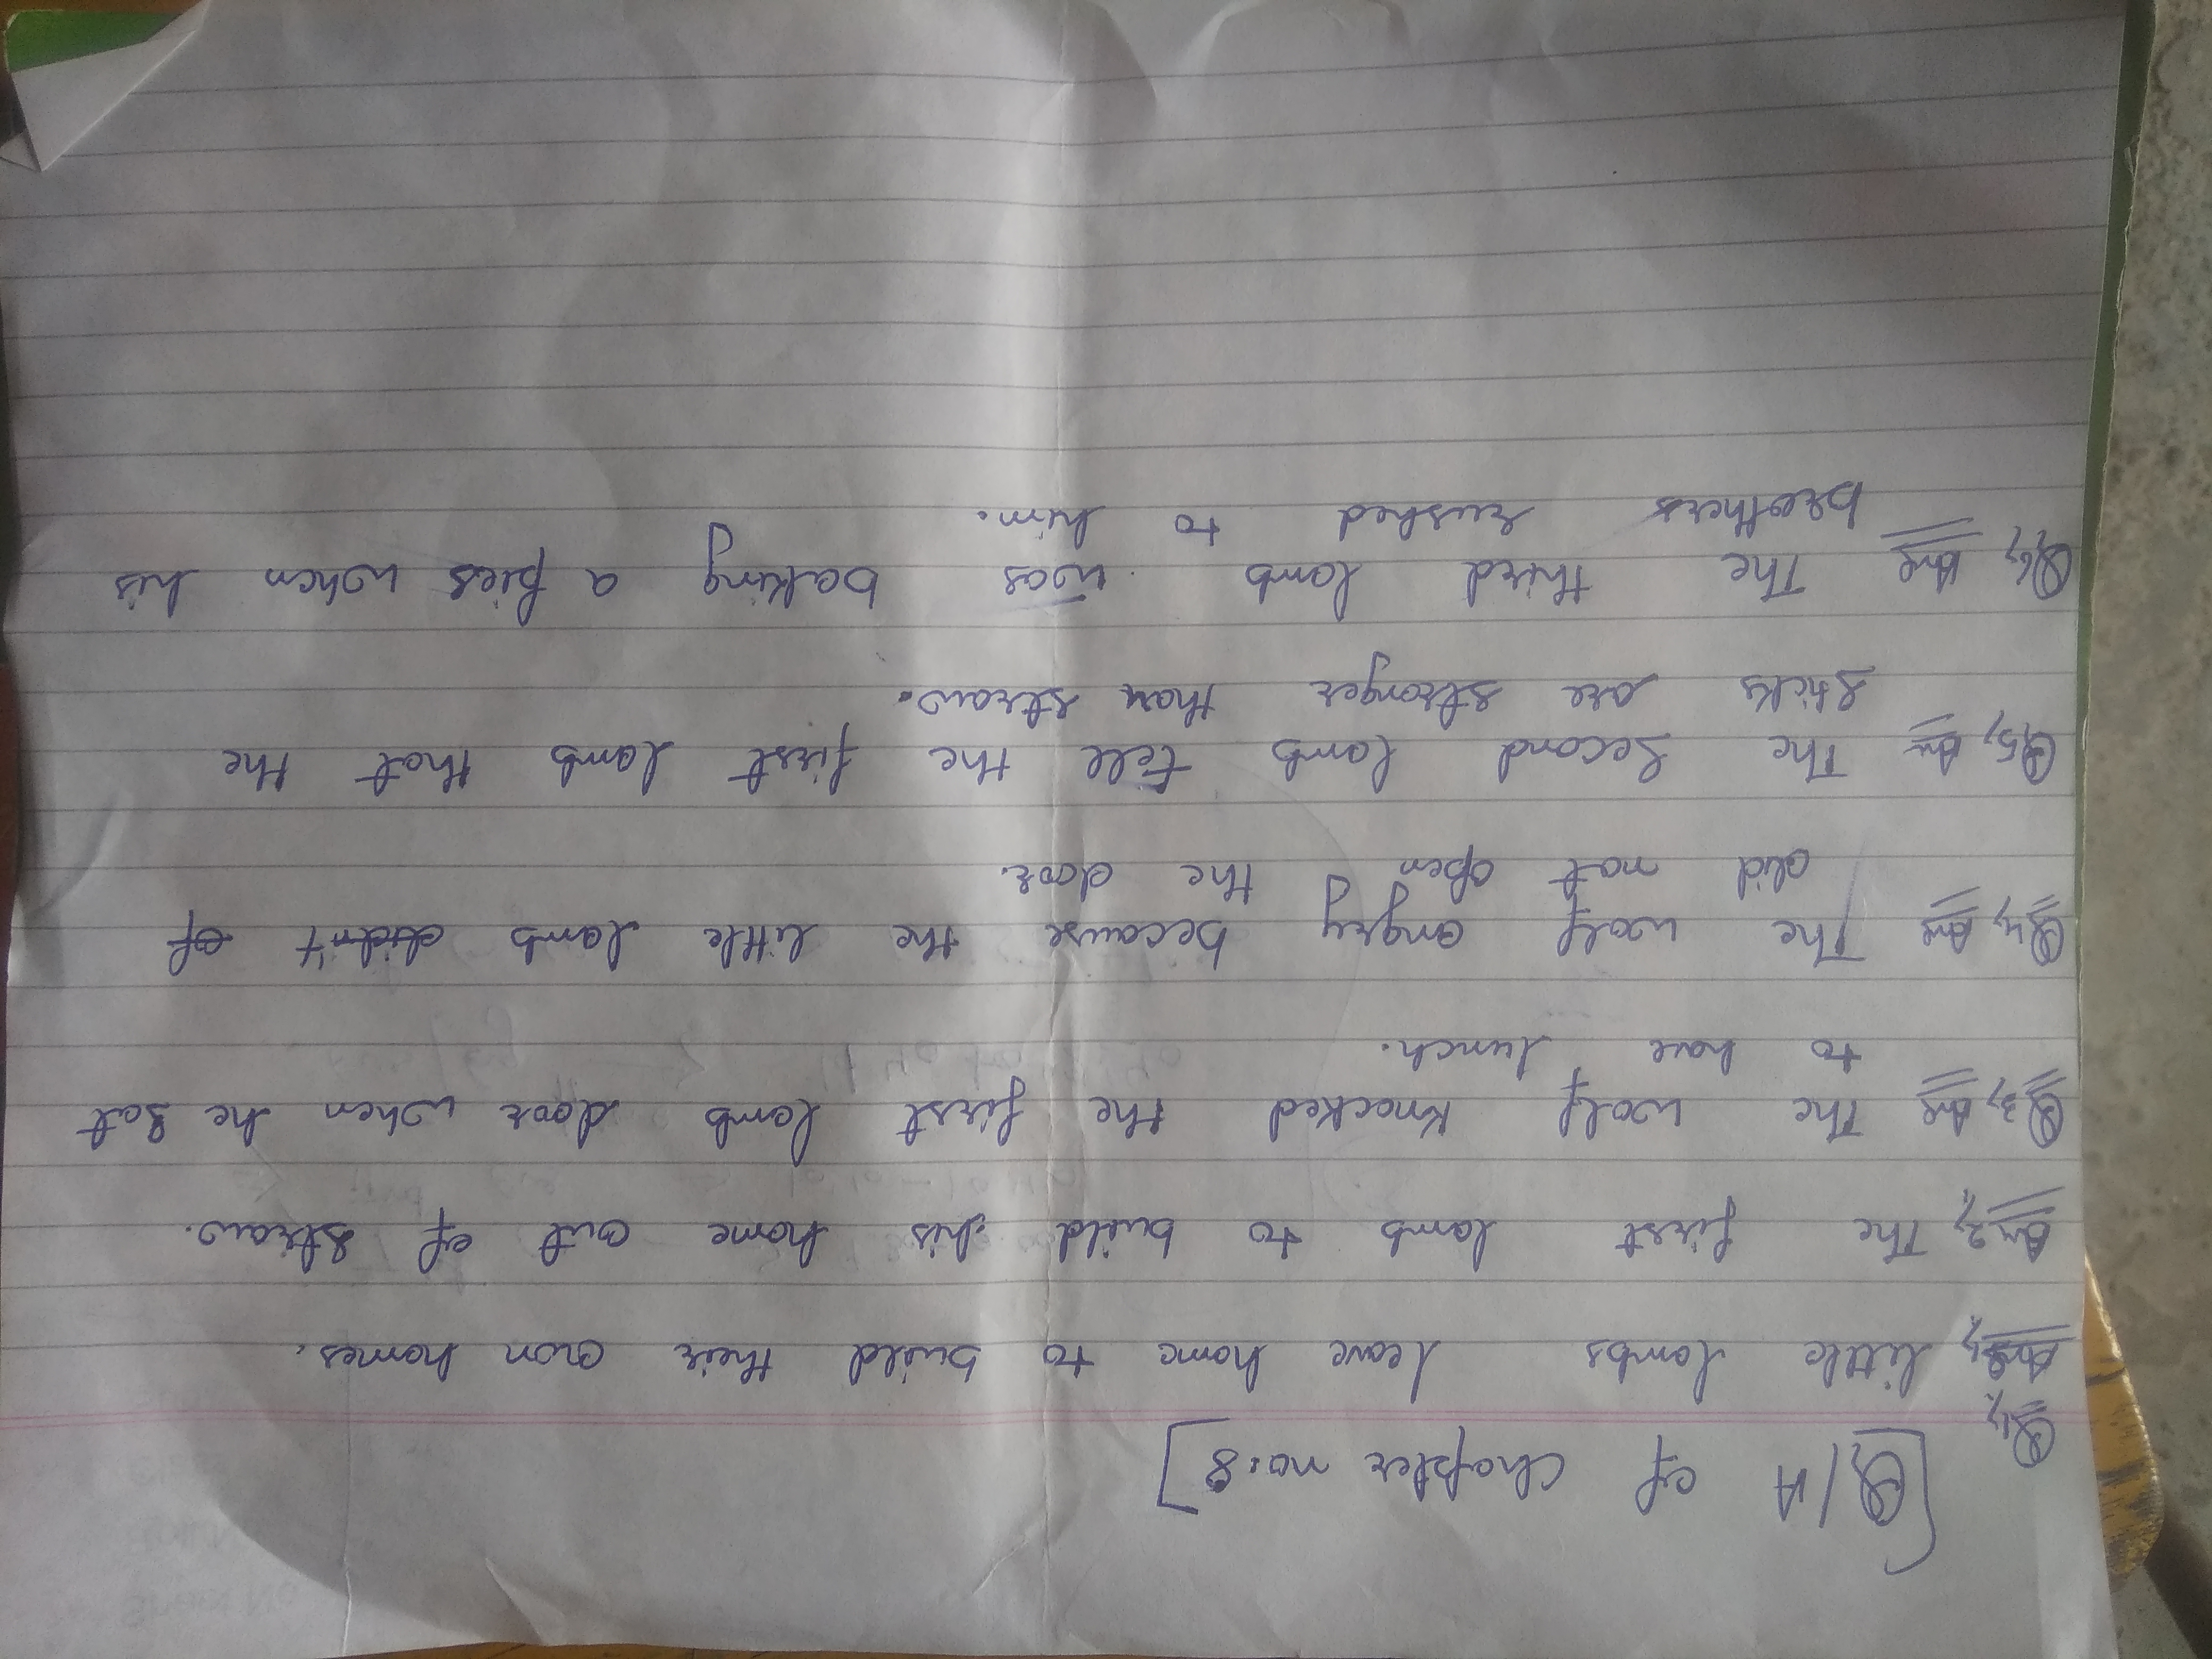 [Q/A of Chapter no.8]
Q1,
Ans, little lambs leave home to build their own homes.
An2, The first lamb to build his home out of straw.
Q3, Ans The wolf knocked the first lamb door when he sat
to have lunch.
Q4, Ans The wolf angry because the little lamb didn't of
did not open the door.
Q5, An The second lamb tell the first lamb that the
sticks are stronger than straw.
Q6, Ans The third lamb was baking a pies when his
brothers rushed to him.